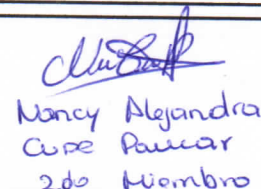 Nancy Alejandra
Cupe Paucar
2do Miembro